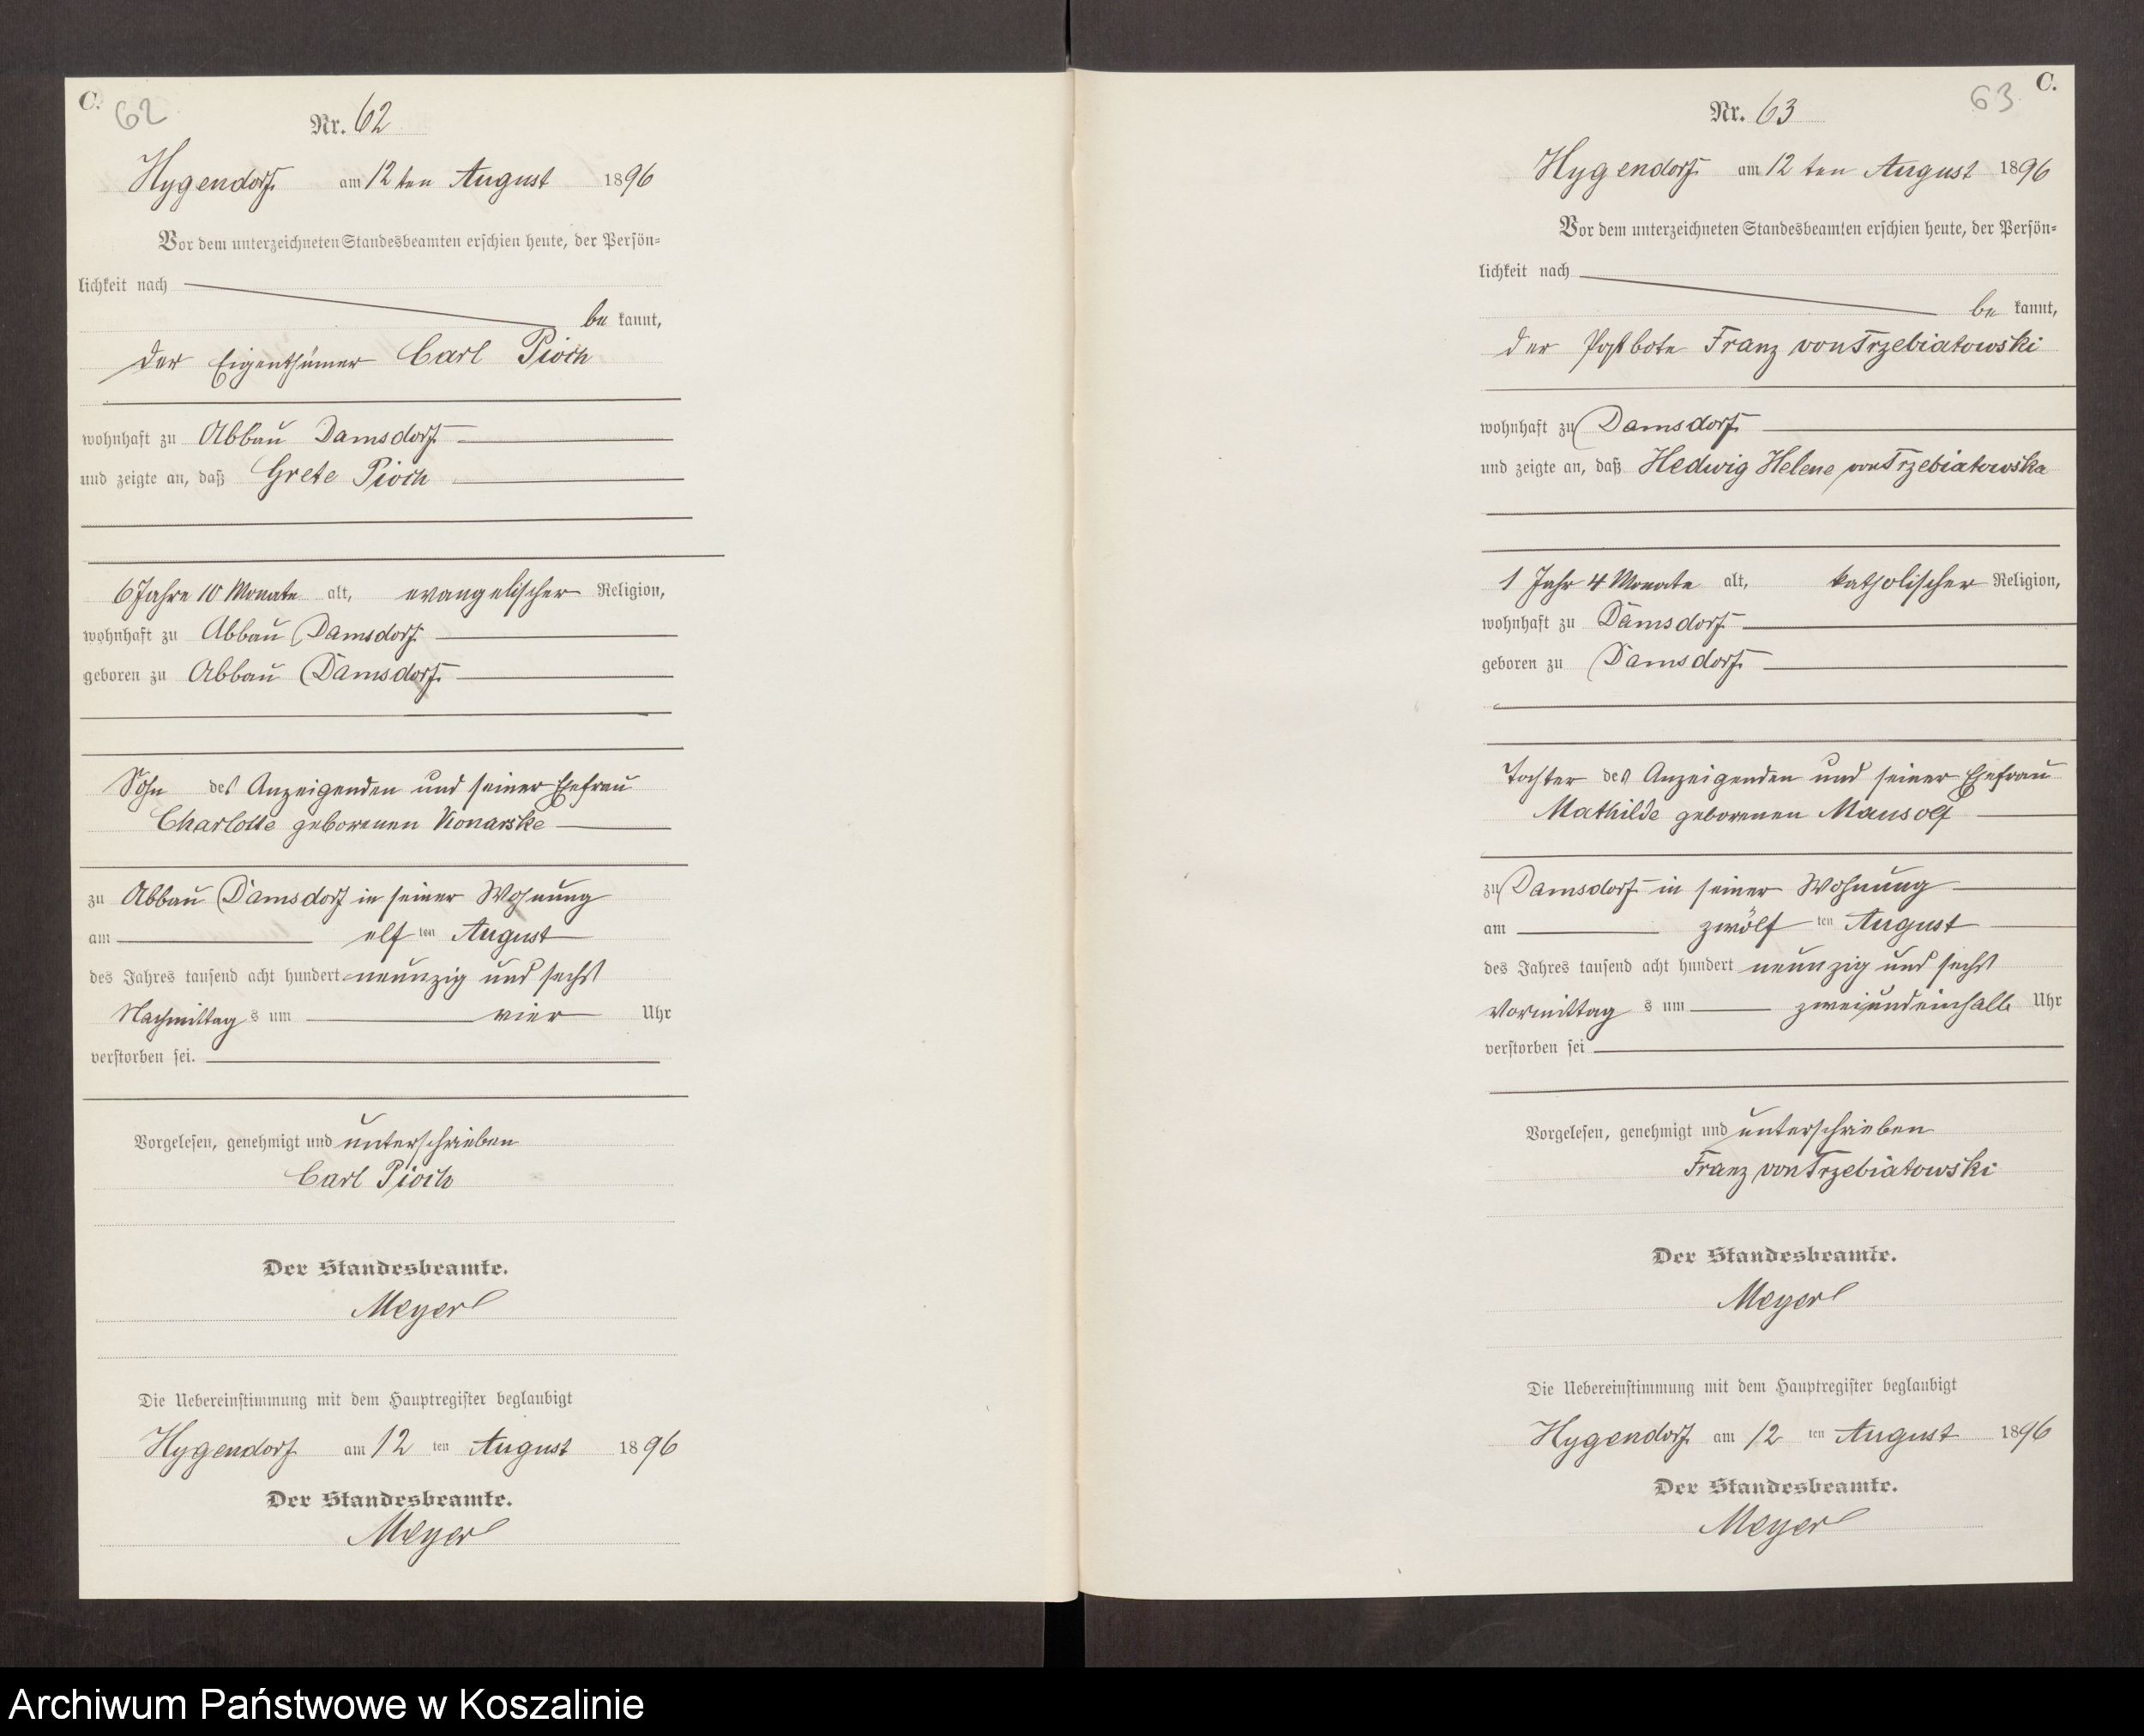 C.
62
Nr. 62
Hygendorf am 12 ten August 1896
Vor dem unterzeichneten Standesbeamten erschien heute, der Persön-
lichkeit nach
be kannt,
der Eigenthümer Carl Pioch
wohnhaft zu Abbau Damsdorf
und zeigte an, daß Grete Pioch
6 Jahre 10 Monate alt, evangelischer Religion,
wohnhaft zu Abbau Damsdorf
geboren zu Abbau Damsdorf
Sohn des Anzeigenden und seiner Ehefrau
Charlotte geborenen Konarske
zu Abbau Damsdorf in seiner Wohnung
am elf ten August
des Jahres tausend acht hundert neunzig und sechs
Nachmittag s um vier Uhr
verstorben sei.
Vorgelesen, genehmigt und unterschrieben
Carl Pioch
Der Standesbeamte.
Meyer
Die Uebereinstimmung mit dem Hauptregister beglaubigt
Hygendorf am 12 ten August 1896
Der Standesbeamte.
Meyer
C.
63
Nr. 63
Hygendorf am 12 ten August 1896
Vor dem unterzeichneten Standesbeamten erschien heute, der Persön-
lichkeit nach
be kannt,
der Postbote Franz von Trzebiatowski
wohnhaft zu Damsdorf
und zeigte an, daß Hedwig Helene von Trzebiatowska
1 Jahr 4 Monate alt, katholischer Religion,
wohnhaft zu Damsdorf
geboren zu Damsdorf
Tochter des Anzeigenden und seiner Ehefrau
Mathilde geborenen Mansolf
zu Damsdorf in seiner Wohnung
am zwölf ten August
des Jahres tausend acht hundert neunzig und sechs
Vormittag s um zweiundeinhalb Uhr
verstorben sei
Vorgelesen, genehmigt und unterschrieben
Franz von Trzebiatowski
Der Standesbeamte.
Meyer
Die Uebereinstimmung mit dem Hauptregister beglaubigt
Hygendorf am 12 ten August 1896
Der Standesbeamte.
Meyer
Archiwum Państwowe w Koszalinie